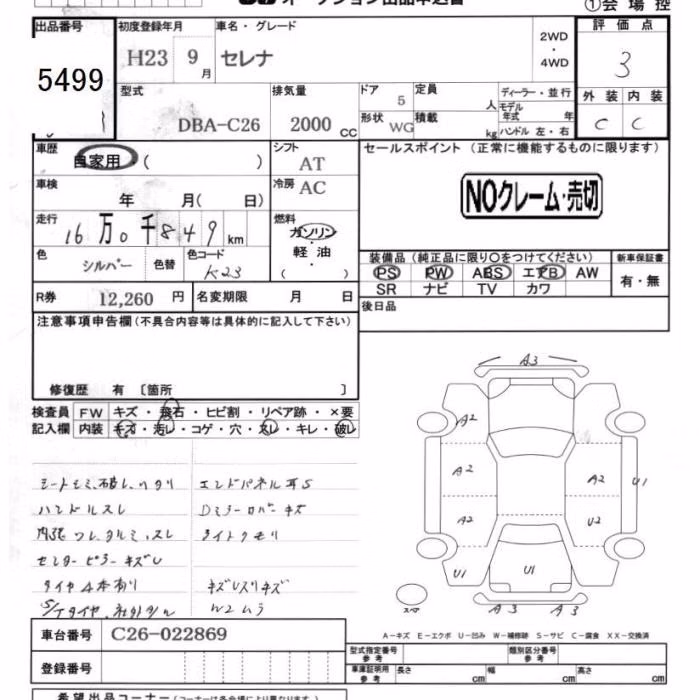 オークション出品申込書
①会場控
出品番号 初度登録年月 車名・グレード 2WD ・ 4WD 評価点
5499 H23 9月 セレナ 3
型式 排気量 ドア 定員 ディーラー・並行 外装 内装
DBA-C26 2000 CC 5 人 モデル年式 年 C C
形状 WG 積載 kg ハンドル 左・右
車歴 自家用 ( ) シフト AT セールスポイント (正常に機能するものに限ります)
車検 年 月( 日) 冷房 AC NOクレーム・売切
走行 16万0千849 km 燃料 ガソリン 軽油 ( )
色 シルバー 色替 色コード K23
装備品 (純正品に限り○をつけてください) 新車保証書
PS PW ABS エアB AW 有・無
SR ナビ TV カワ
R券 12,260 円 名変期限 月 日 後日品
注意事項申告欄 (不具合内容等は具体的に記入して下さい)
修復歴 有 〔箇所 〕
検査員 FW キズ・飛石・ヒビ割・リペア跡・×要
記入欄 内装 キズ・汚レ・コゲ・穴・スレ・キレ・破レ
エンドパネル
ハンドルスレ Dミラーロバーキズ
内張 スレ ライトクモリ
センターピラーキズU
タイヤ4本有り
S/Tタイヤ W2ムラ
A3
A2
A2 A2 U1
A2 U2
U1 U1
スペア A3 A3
A-キズ E-エクボ U-凹み W-補修跡 S-サビ C-腐食 XX-交換済
車台番号 C26-022869
型式指定番号 参考 類別区分番号 参考
登録番号 車庫証明用 参考 長さ cm 幅 cm 高さ cm
希望出品コーナー